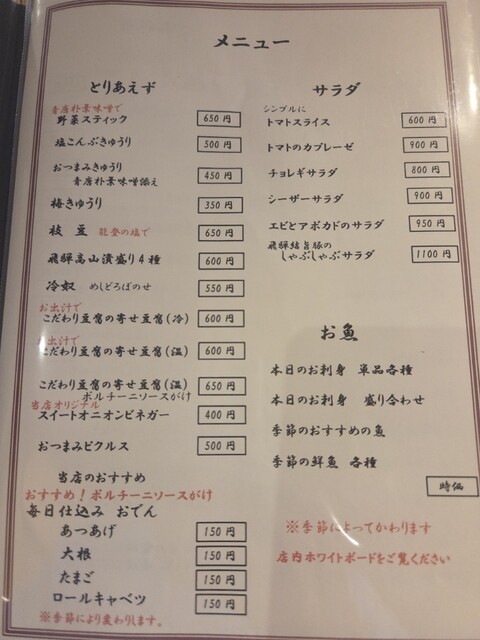 メニュー
とりあえず
青唐朴葉味噌で
野菜スティック 650円
塩こんぶきゅうり 500円
おつまみきゅうり
青唐朴葉味噌添え 450円
梅きゅうり 350円
枝豆 能登の塩で 650円
飛騨高山漬盛り4種 600円
冷奴 めしどろぼのせ 550円
お出汁で
こだわり豆腐の寄せ豆腐(冷) 600円
お出汁で
こだわり豆腐の寄せ豆腐(温) 600円
こだわり豆腐の寄せ豆腐(温) 650円
ポルチーニソースがけ
当店オリジナル
スイートオニオンビネガー 400円
おつまみピクルス 500円
当店のおすすめ
おすすめ!ポルチーニソースがけ
毎日仕込み おでん
あつあげ 150円
大根 150円
たまご 150円
ロールキャベツ 150円
※季節により変わります。
サラダ
シンプルに
トマトスライス 600円
トマトのカプレーゼ 900円
チョレギサラダ 800円
シーザーサラダ 900円
エビとアボカドのサラダ 950円
飛騨結旨豚の
しゃぶしゃぶサラダ 1100円
お魚
本日のお刺身 単品各種
本日のお刺身 盛り合わせ
季節のおすすめの魚
季節の鮮魚 各種
時価
※季節によってかわります
店内ホワイトボードをご覧ください